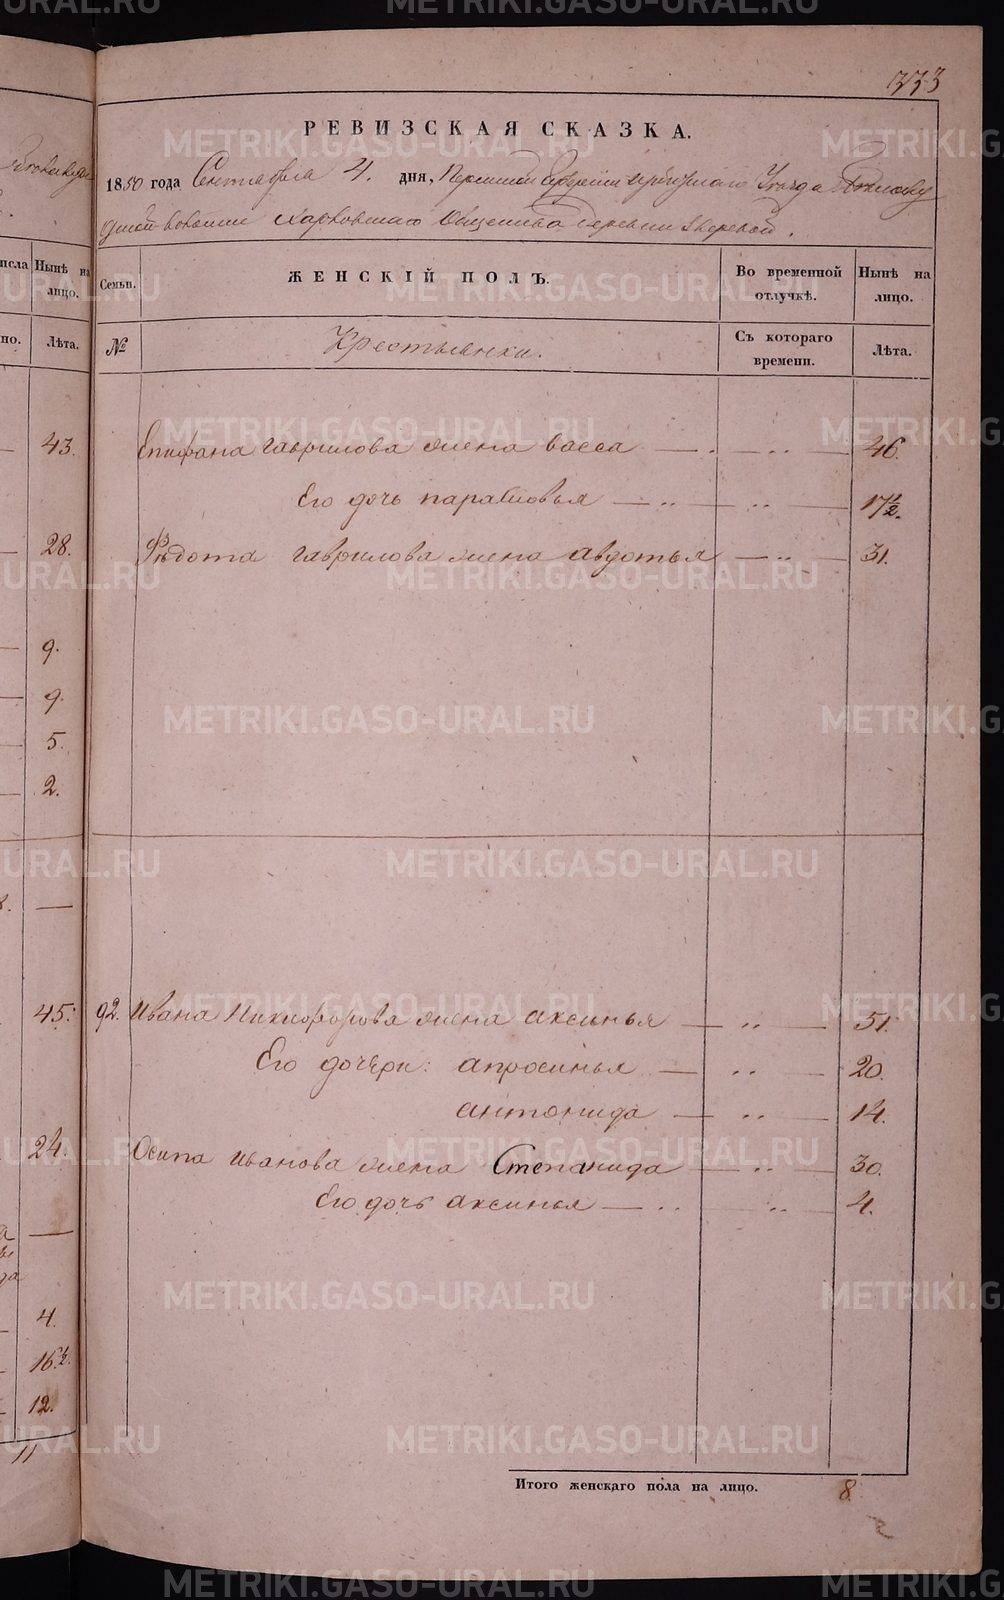 333
РЕВИЗСКАЯ СКАЗКА.
1850 года Сентября 4. дня, Пермской Губернии Ирбитскаго Уезда
волости Харловскаго Общества деревни Зверевой.
Семьи.
ЖЕНСКІЙ ПОЛЪ.
Во временной отлучкѣ.
Нынѣ на лицо.
№
Крестьянки.
Съ котораго времени.
Лѣта.
Епифана гаврилова жена васса — . — .. — 46.
Его дочь парасковья — .. — .. — 17½.
Фѣдота гаврилова жена авдотья — .. — 31.
92. Ивана Никифорова жена аксинья — .. — 51.
Его дочери: апросинья — .. — 20.
антонида — .. — 14.
Осипа иванова жена Степанида — .. — 30.
Его дочь аксинья — .. — .. — 4.
Итого женскаго пола на лицо. 8.
Нынѣ на лицо.
Лѣта.
43.
28.
9.
9.
5.
2.
45.
24.
4.
16½.
12.
11
METRIKI.GASO-URAL.RU